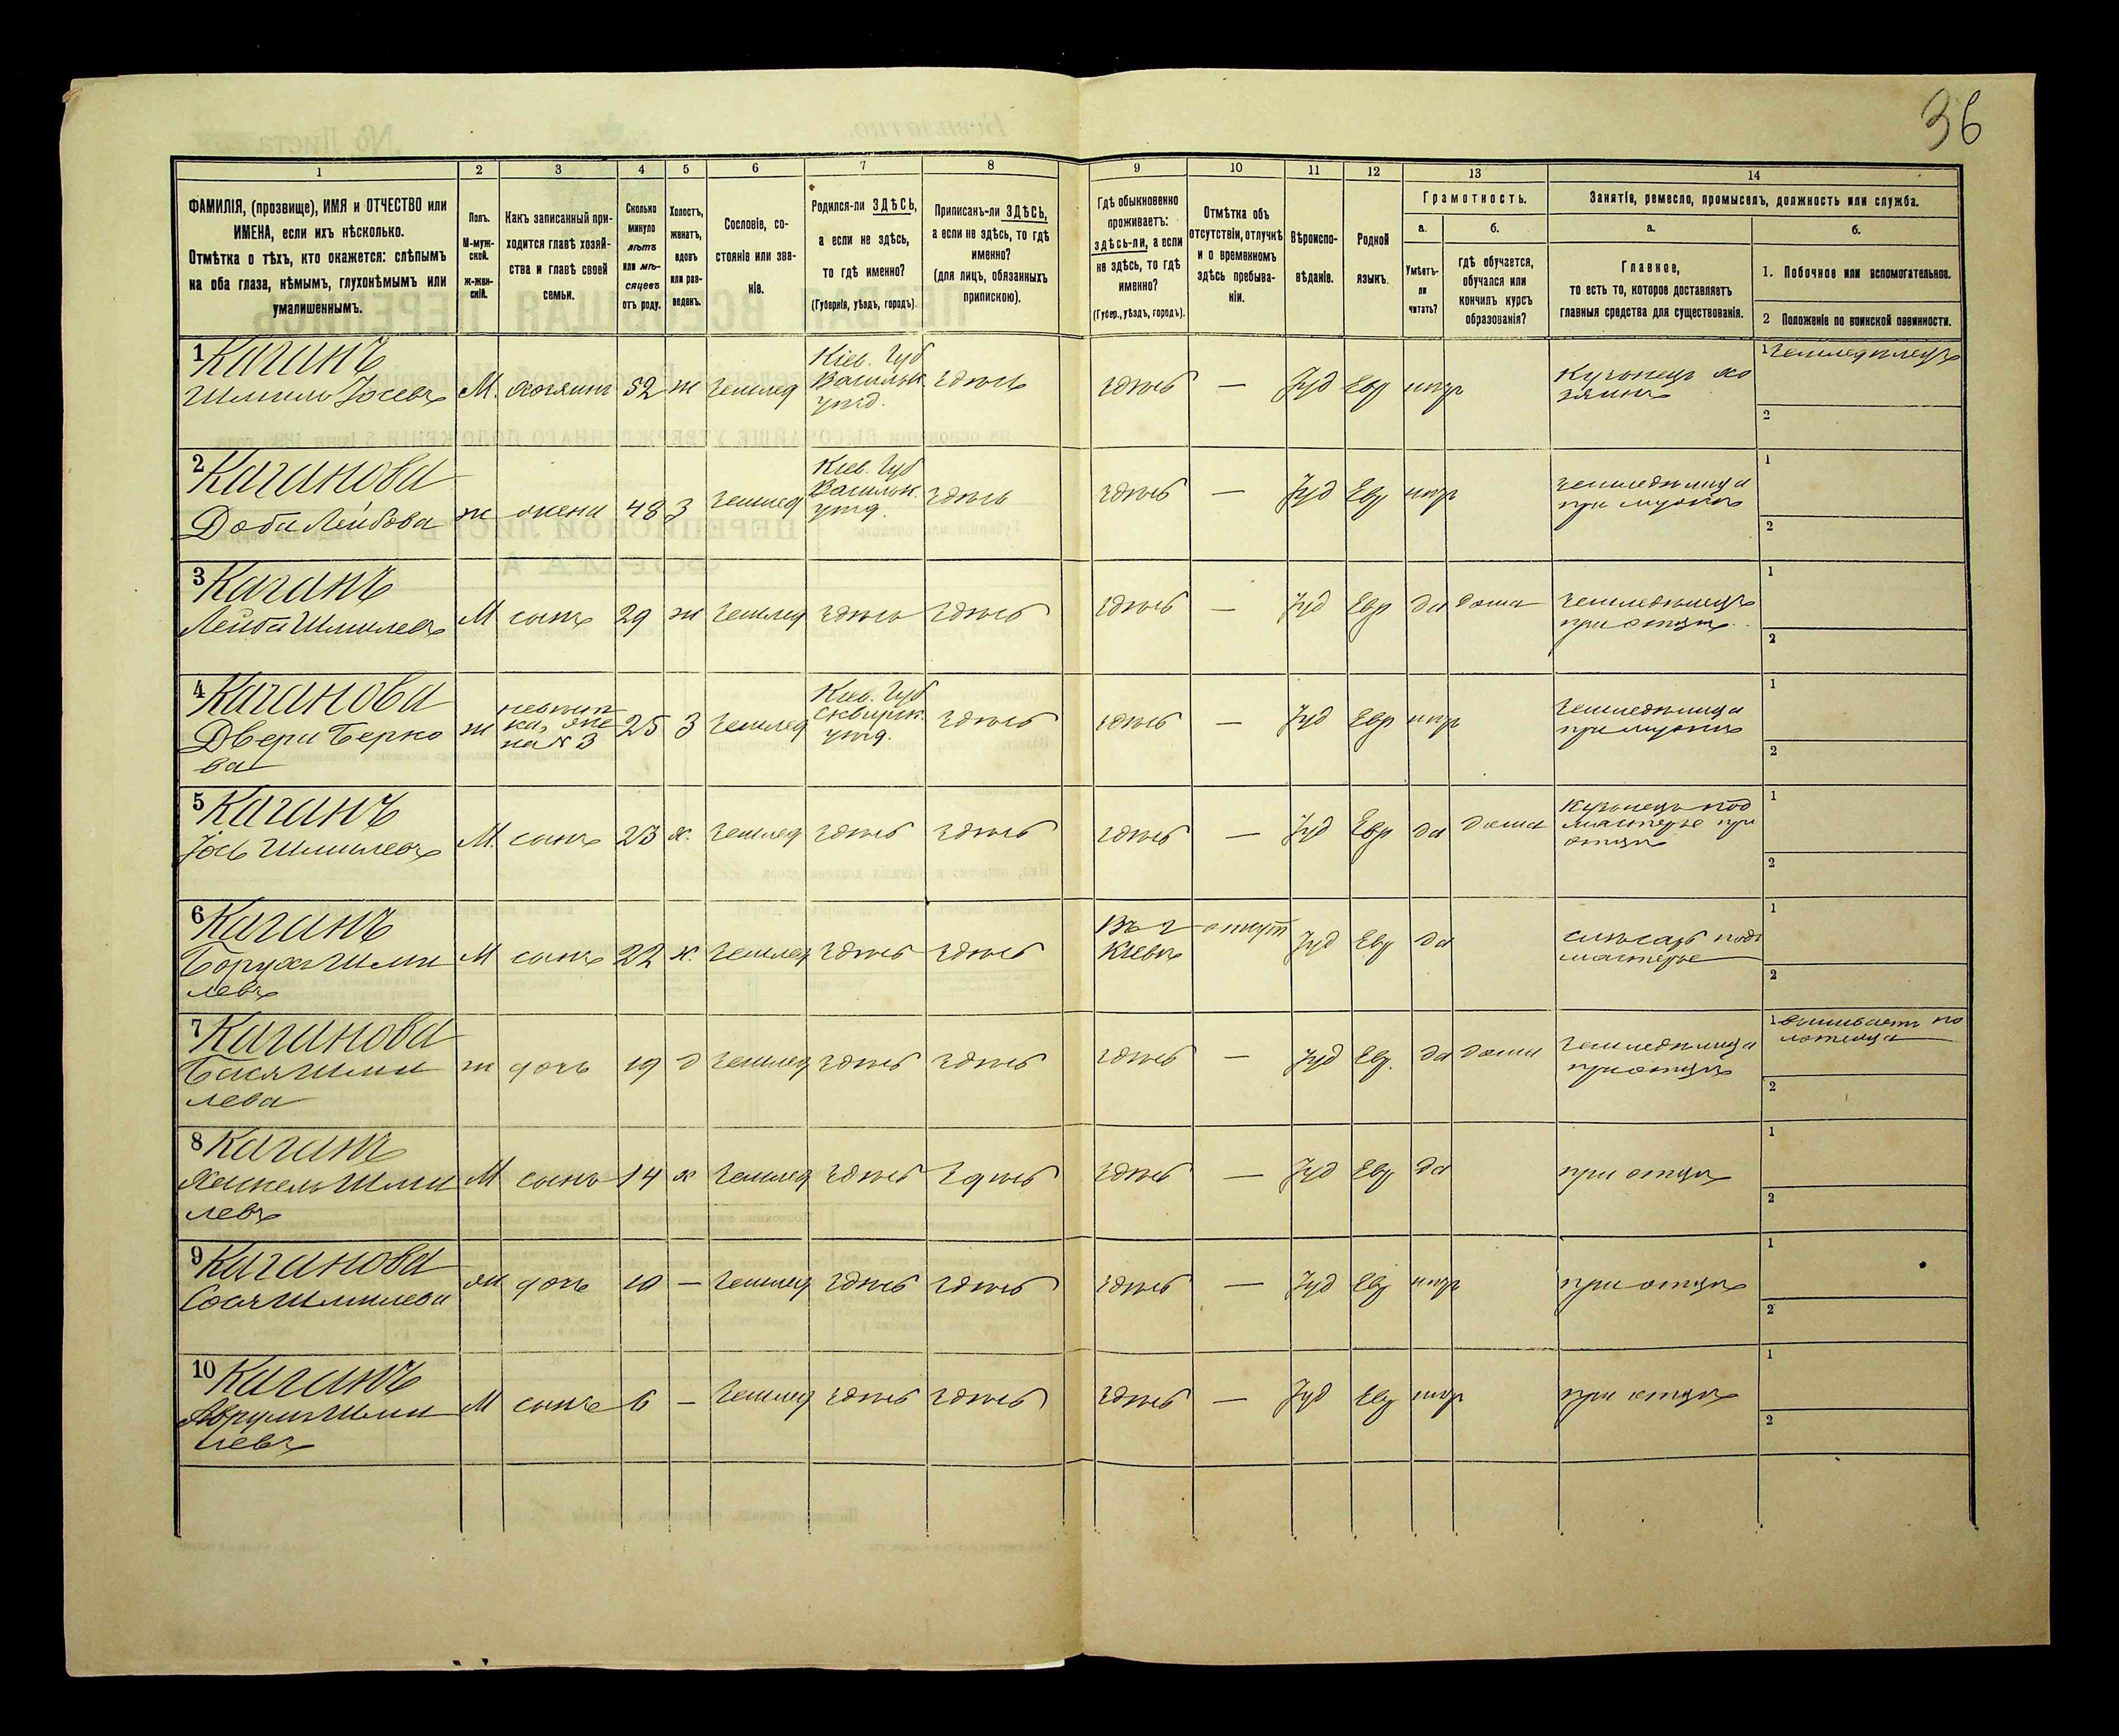 36
1 2 3 4 5 6 7 8 9 10 11 12 13 14
ФАМИЛІЯ, (прозвище), ИМЯ и ОТЧЕСТВО или
ИМЕНА, если ихъ нѣсколько.
Отмѣтка о тѣхъ, кто окажется: слѣпымъ
на оба глаза, нѣмымъ, глухонѣмымъ или
умалишеннымъ.
Полъ.
М-муж-
ской.
Ж-жен-
скій.
Какъ записанный при-
ходится главѣ хозяй-
ства и главѣ своей
семьи.
Сколько
минуло
лѣтъ
или мѣ-
сяцевъ
отъ роду.
Холостъ,
женатъ,
вдовъ
или раз-
веденъ.
Сословіе, со-
стояніе или зва-
ніе.
Родился-ли ЗДѢСЬ,
а если не здѣсь,
то гдѣ именно?
(Губернія, уѣздъ, городъ).
Приписанъ-ли ЗДѢСЬ,
а если не здѣсь, то гдѣ
именно?
(для лицъ, обязанныхъ
припискою).
Гдѣ обыкновенно
проживаетъ:
здѣсь-ли, а если
не здѣсь, то гдѣ
именно?
(Губер., уѣздъ, городъ).
Отмѣтка объ
отсутствіи, отлучкѣ
и о временномъ
здѣсь пребыва-
ніи.
Вѣроиспо-
вѣданіе.
Родной
языкъ.
Грамотность.
а.
Умѣетъ-
ли
читать?
б.
Гдѣ обучается,
обучался или
кончилъ курсъ
образованія?
Занятіе, ремесло, промыселъ, должность или служба.
а.
Главное,
то есть то, которое доставляетъ
главныя средства для существованія.
б.
1. Побочное или вспомогательное.
2 Положеніе по воинской повинности.
1 Каганъ
Шмиль Іосевъ М. хозяинъ 52 ж Землед
Кіев. Губ
Васильк.
уѣзд.
здѣсь здѣсь — Іуд Евр нѣтъ
Кузнецъ хо
зяинъ
1 Земледѣлецъ
2
2 Каганова
Доба Лейбова ж жена 48 З Землед
Кіев. Губ
Васильк.
уѣзд.
здѣсь здѣсь — Іуд Евр нѣтъ
земледѣлица
при мужѣ
1
2
3 Каганъ
Лейба Шмилевъ М сынъ 29 ж Землед здѣсь здѣсь здѣсь — Іуд Евр да дома
земледѣлецъ
при отцѣ
1
2
4 Каганова
Двера Берко
ва
ж
невѣст
ка, же
на № 3
25 З Землед
Кіев. Губ
Сквирск.
уѣзд.
здѣсь здѣсь — Іуд Евр нѣтъ
Земледѣлица
при мужѣ
1
2
5 Каганъ
Іось Шмилевъ М. сынъ 23 х. Землед здѣсь здѣсь здѣсь — Іуд Евр да дома
Кузнецъ под
мастерье при
отцѣ
1
2
6 Каганъ
Борухъ Шми
левъ
М сынъ 22 х. Землед здѣсь здѣсь
Въ г
Кіевѣ
отсут Іуд Евр да
слѣсарь под
мастерье
1
2
7 Каганова
Бася Шми
лева
ж дочь 19 д Землед здѣсь здѣсь здѣсь — Іуд Евр. да дома
Земледѣлица
при отцѣ
1 вышиваетъ по
лотенца
2
8 Каганъ
Хаскель Шми
левъ
М сынъ 14 х Землед здѣсь здѣсь здѣсь — Іуд Евр да при отцѣ
1
2
9 Каганова
Сося Шмилева ж дочь 10 — Землед здѣсь здѣсь здѣсь — Іуд Евр нѣтъ при отцѣ
1
2
10 Каганъ
Аврумъ Шми
левъ
М сынъ 6 — Землед здѣсь здѣсь здѣсь — Іуд Евр нѣтъ при отцѣ
1
2